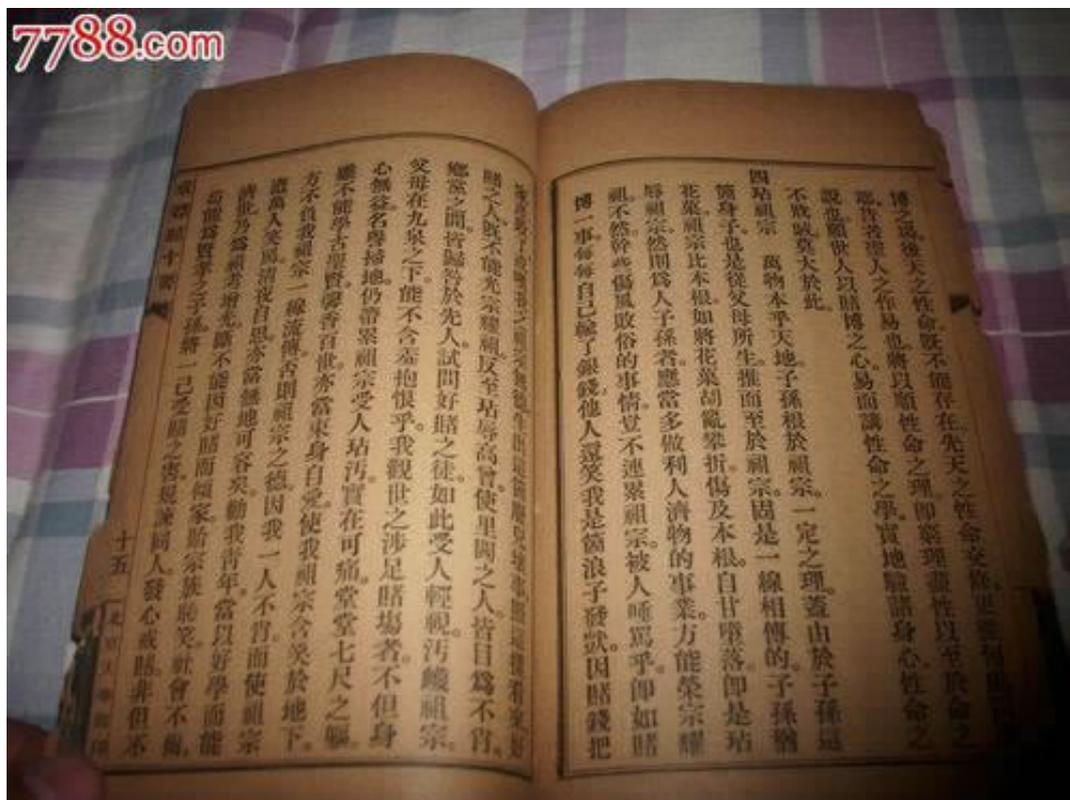 7788.com
博之爲後天之性命既不能存在先天之性命
耶昔者聖人之作易也將以順性命之理即窮理盡性以至於命之
說也願世人以賭博之心易而講性命之學實地驗諸身心性命之
不戕賊莫大於此
四玷祖宗 萬物本乎天地子孫根於祖宗一定之理蓋由於子孫這
箇身子也是從父母所生推而至於祖宗固是一線相傳的子孫猶
花葉祖宗比本根如將花葉胡亂攀折傷及本根自甘墮落即是玷
辱祖宗然則爲人子孫者應當多做利人濟物的事業方能榮宗耀
祖不然幹些傷風敗俗的事情豈不連累祖宗被人唾罵乎即如賭
博一事每每自己輸了銀錢他人還笑我是箇浪子發獃因賭錢把
賭之人既不能光宗耀祖反至玷辱高曾使里閭之人皆目爲不肖
鄉黨之間皆歸咎於先人試問好賭之徒如此受人輕視汚衊祖宗
父母在九泉之下能不含羞抱恨乎我觀世之涉足賭場者不但身
心無益名譽掃地仍帶累祖宗受人玷汚實在可痛堂堂七尺之軀
雖不能學古聖賢馨香百世亦當束身自愛使我祖宗含笑於地下
方不負我祖宗一線流傳否則祖宗之德因我一人不肖而使祖宗
遭萬人笑罵清夜自思亦當無地可容矣勸我青年當以好學而能
濟世乃爲祖考增光斷不能因好賭而傾家貽宗族恥笑社會不齒
苟能爲賢孝之子孫將一己受賭之害現諫同人發心戒賭非但不
十五